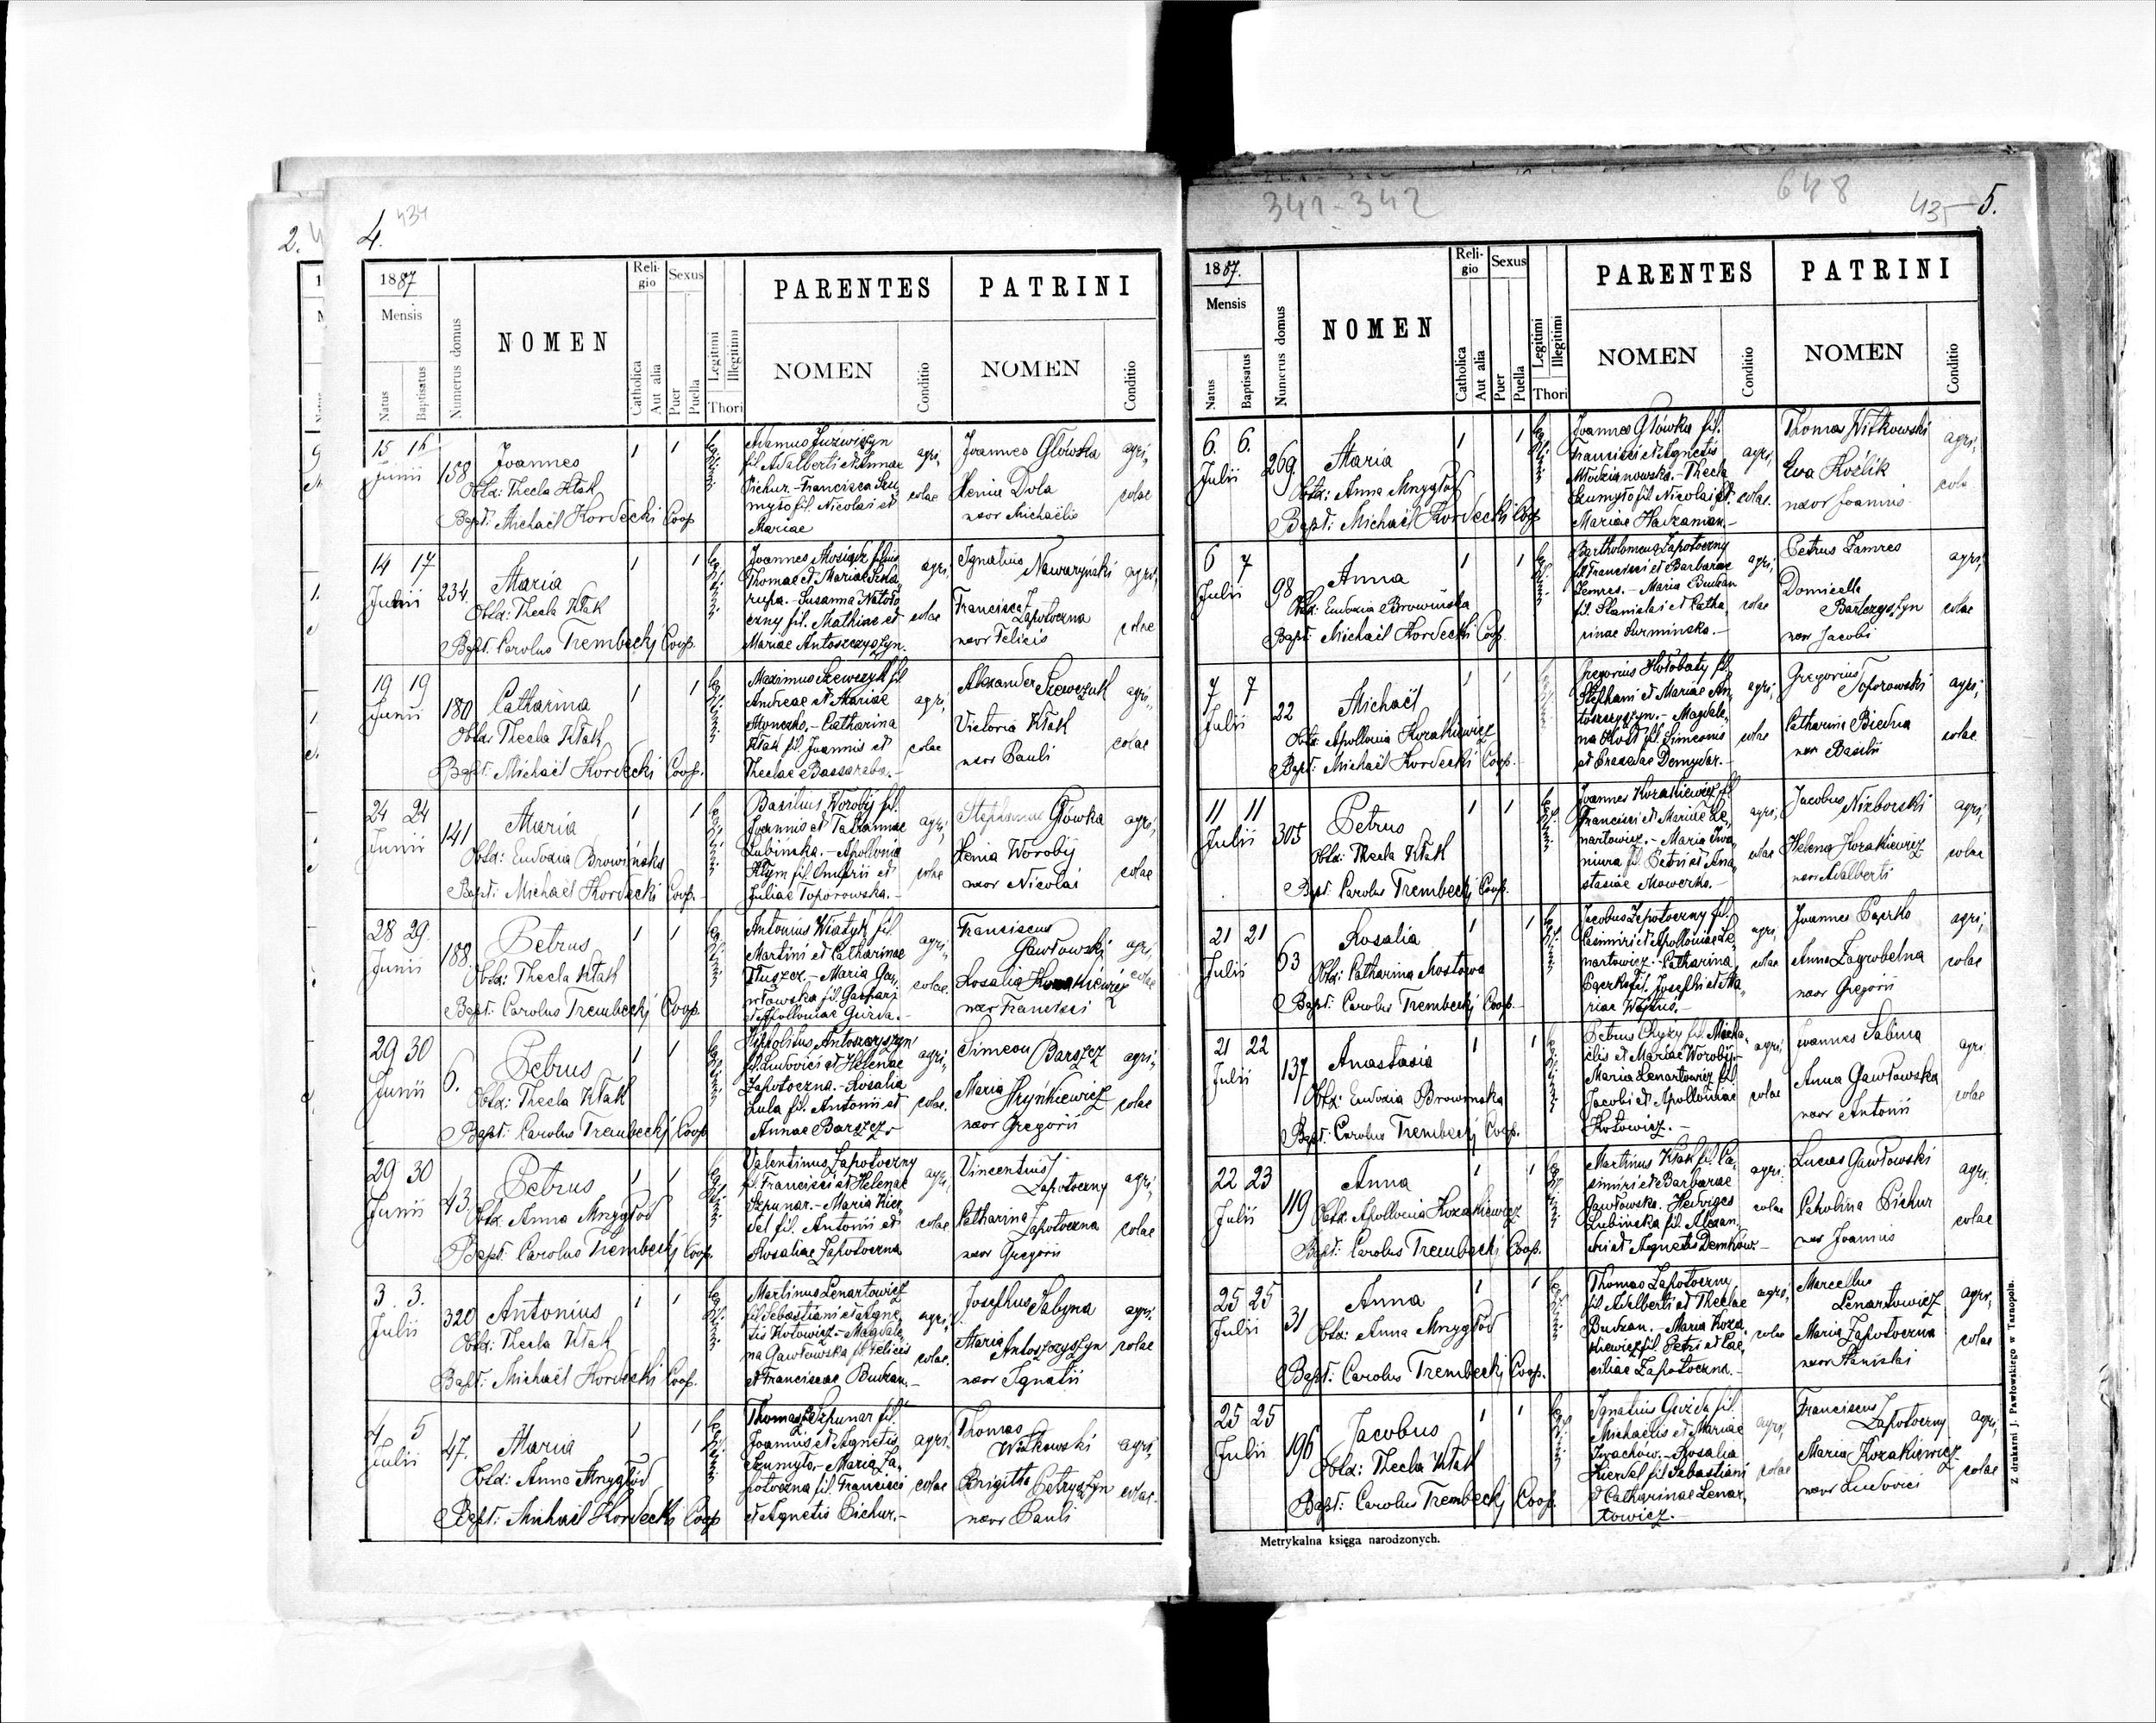 2.
4.
434
1887
Mensis
Natus
Baptisatus
Numerus domus
NOMEN
Religio
Catholica
Aut alia
Sexus
Puer
Puella
Legitimi
Illegitimi
Thori
PARENTES
NOMEN
Conditio
PATRINI
NOMEN
Conditio
15 15
Junii
158
Joannes
Obst: Thecla Kłak
Bapt: Michaël Kordecki Coop
fil. Adalberti et Annae
Pichur - Francisca Szu
myło fil. Nicolai et
Mariae
agri,,
colae
Joannes Główka
Xenia Dola
uxor Michaëlis
agri,,
colae
14 17
Junii
234
Maria
Obst: Thecla Kłak
Bapt: Carolus Trembecki Coop.
Thomae et Mariae
Susanna
fil. Mathiae et
Mariae Antoszczyszyn.
agri,
colae
Ignatius
Francisca Zapotoczna
uxor Felicis
agri,
colae
19 19
Junii
180
Catharina
Obst: Thecla Kłak
Bapt: Michaël Kordecki Coop.
Maximus Szewczyk fil
Andreae et Mariae
Catharina
Kłak fil. Joannis et
Theclae Bassaraba.-
agri,
colae
Alexander Szewczuk
Victoria Kłak
uxor Pauli
agri,,
colae
24 24
Junii
141
Maria
Obst: Eudoxia Browińska
Bapt: Michaël Kordecki Coop.-
Basilius Worobij fil.
Joannis et Tatiannae
Lubinska.- Apollonia
Kłym fil. Onufrii et
Juliae Toporowska.-
agri,
colae
Stephanus Główka
Xenia Worobij
uxor Nicolai
agri,
colae
28 29
Junii
188
Petrus
Obst: Thecla Kłak
Bapt: Carolus Trembecki Coop.
Antonius Wiatyk fil.
Martini et Catharinae
Tłuszcz.- Maria Ga,,
włowska fil. Gaspari
et Apolloniae Guzda.-
agri,
colae.
Franciscus
Gawłowski
Rosalia
uxor Francisci
agri,
colae
29 30
Junii
6.
Petrus
Obst: Thecla Kłak
Bapt: Carolus Trembecki Coop
Hipolitus Antoszczyszyn
fil. Ludovici et Helenae
Zapotoczna.- Rosalia
Lula fil. Antonii et
Annae Barszcz.-
agri,
colae.
Simeon Barszcz
Maria Hryńkiewicz
uxor Gregorii
agri,,
colae
29 30
Junii
43.
Petrus
Obst: Anna Mnygłód
Bapt: Carolus Trembecki Coop.
Valentinus Zapotoczny
fil. Francisci et Helenae
Szpunar.- Maria Kier,,
del fil. Antonii et
Rosaliae Zapotoczna
agri,
colae
Vincentius
Zapotoczny
Catharina
Zapotoczna
uxor Gregorii
agri,
colae
3. 3.
Julii
320
Antonius
Obst: Thecla Kłak
Bapt: Michaël Kordecki Coop.
Martinus Lenartowicz
fil. Sebastiani et Agne,
tis Kotowicz - Magdale,
na Gawłowska fil. Felicis
et Franciscae Budzan.-
agri,
colae.
Josephus Sabyna
Maria Antoszczyszyn
uxor Ignatii
agri,
colae
4 5
Julii
47.
Maria
Obst: Anna Mnygłód
Bapt: Michaël Kordecki Coop
Thomas Szpunar fil.
Joannis et Agnetis
Szumyło.- Maria Za,
potoczna fil. Francisci
et Agnetis Pichur.-
agri,
colae
Thomas
Witkowski
Brigitta Petryszyn
uxor Pauli
agri,
colae.
341-342
648
435
5.
1887.
Mensis
Natus
Baptisatus
Numerus domus
NOMEN
Religio
Catholica
Aut alia
Sexus
Puer
Puella
Legitimi
Illegitimi
Thori
PARENTES
NOMEN
Conditio
PATRINI
NOMEN
Conditio
6. 6.
Julii
269.
Maria
Obst: Anna Mnygłód
Bapt: Michaël Kordecki Coop
Joannes Główka fil.
Francisci et Agnetis
Młodzianowska.- Thecla
Szumyło fil. Nicolai et
Mariae Hadzaman.-
agri,
colae.
Thomas Witkowski
Eva Koźlik
uxor Joannis.
agri,
6 7
Julii
98
Anna
Obst: Eudoxia Browińska
Bapt: Michaël Kordecki Coop.
Bartholomeus Zapotoczny
fil. Francisci et Barbarae
Zemres.- Maria Budzan
fil. Stanislai et Catha,
rinae Surmińska.-
agri,
colae
Petrus Zamres
Domicella
Bartczyszyn
uxor Jacobi
agri,
colae
7 7
Julii
22
Michaël
Obst: Apollonia Kozakiewicz
Bapt: Michaël Kordecki Coop.-
Gregorius Hołobaty fil.
Stephani et Mariae An,
toszczyszyn.- Magdale,
na fil. Simeonis
et Demydar.-
agri,
colae
Gregorius
Toporowski
Catharina Biedna
uxor Basilii
agri,
colae.
11 11
Julii
305
Petrus
Obst: Thecla Kłak
Bapt: Carolus Trembecki Coop.
Joannes Kozakiewicz fil
Francisci et Mariae Le,
nartowicz.- Maria Iwa,
niura fil. Petri et Ana,
stasiae Mowerka.-
agri,
colae
Jacobus Niżborski
Helena Kozakiewicz
uxor Adalberti
agri,
colae
21 21
Julii
63
Rosalia
Obst: Catharina Mostowa
Bapt: Carolus Trembecki Coop.-
Jacobus Zapotoczny fil.
Casimiri et Apolloniae Le,
nartowicz.- Catharina
fil. Josephi et Ma,
riae
agri,
colae
Joannes
Anna Zagrobelna
uxor Gregorii
agri,
colae
21 22
Julii
137
Anastasia
Obst: Eudoxia Browinska
Bapt: Carolus Trembecki Coop.
Petrus fil. Micha,
elis et Mariae Worobij.-
Maria Lenartowicz fil.
Jacobi et Apolloniae
Kotowicz.-
agri,
colae
Joannes Sabina
Anna Gawłowska
uxor Antonii
agri
colae
22 23
Julii
119
Anna
Obst: Apollonia Kozakiewicz
Bapt: Carolus Trembecki Coop.
Martinus Kłak fil. Ca,
simiri et Barbarae
Gawłowska. Hedviges
Lubinska fil. Alexan,
dri et Agnetis Demków.-
agri,
colae
Lucas Gawłowski
Carolina Pichur
uxor Joannis
agri.
colae
25 25
Julii
31
Anna
Obst: Anna Mnygłód
Bapt: Carolus Trembecki Coop.
Thomas Zapotoczny
fil. Adalberti et Theclae
Budzan.- Maria Koza,
kiewicz fil. Petri et Cae,
ciliae Zapotoczna.-
agri,
colae
Marcellus
Lenartowicz
Maria Zapotoczna
uxor Stanislai
agri,
colae
25 25
Julii
196
Jacobus
Obst: Thecla Kłak
Bapt: Carolus Trembecki Coop.
Ignatius Guzda fil.
Michaëlis et Mariae
Iwachów.- Rosalia
Kierdel fil Sebastiani
et Catharinae Lenar,
towicz.-
agri,
colae
Franciscus
Zapotoczny
Maria Kozakiewicz
uxor Ludovici
agri,
colae
Metrykalna księga narodzonych.
Z drukarni J. Pawłowskiego w Tarnopolu.